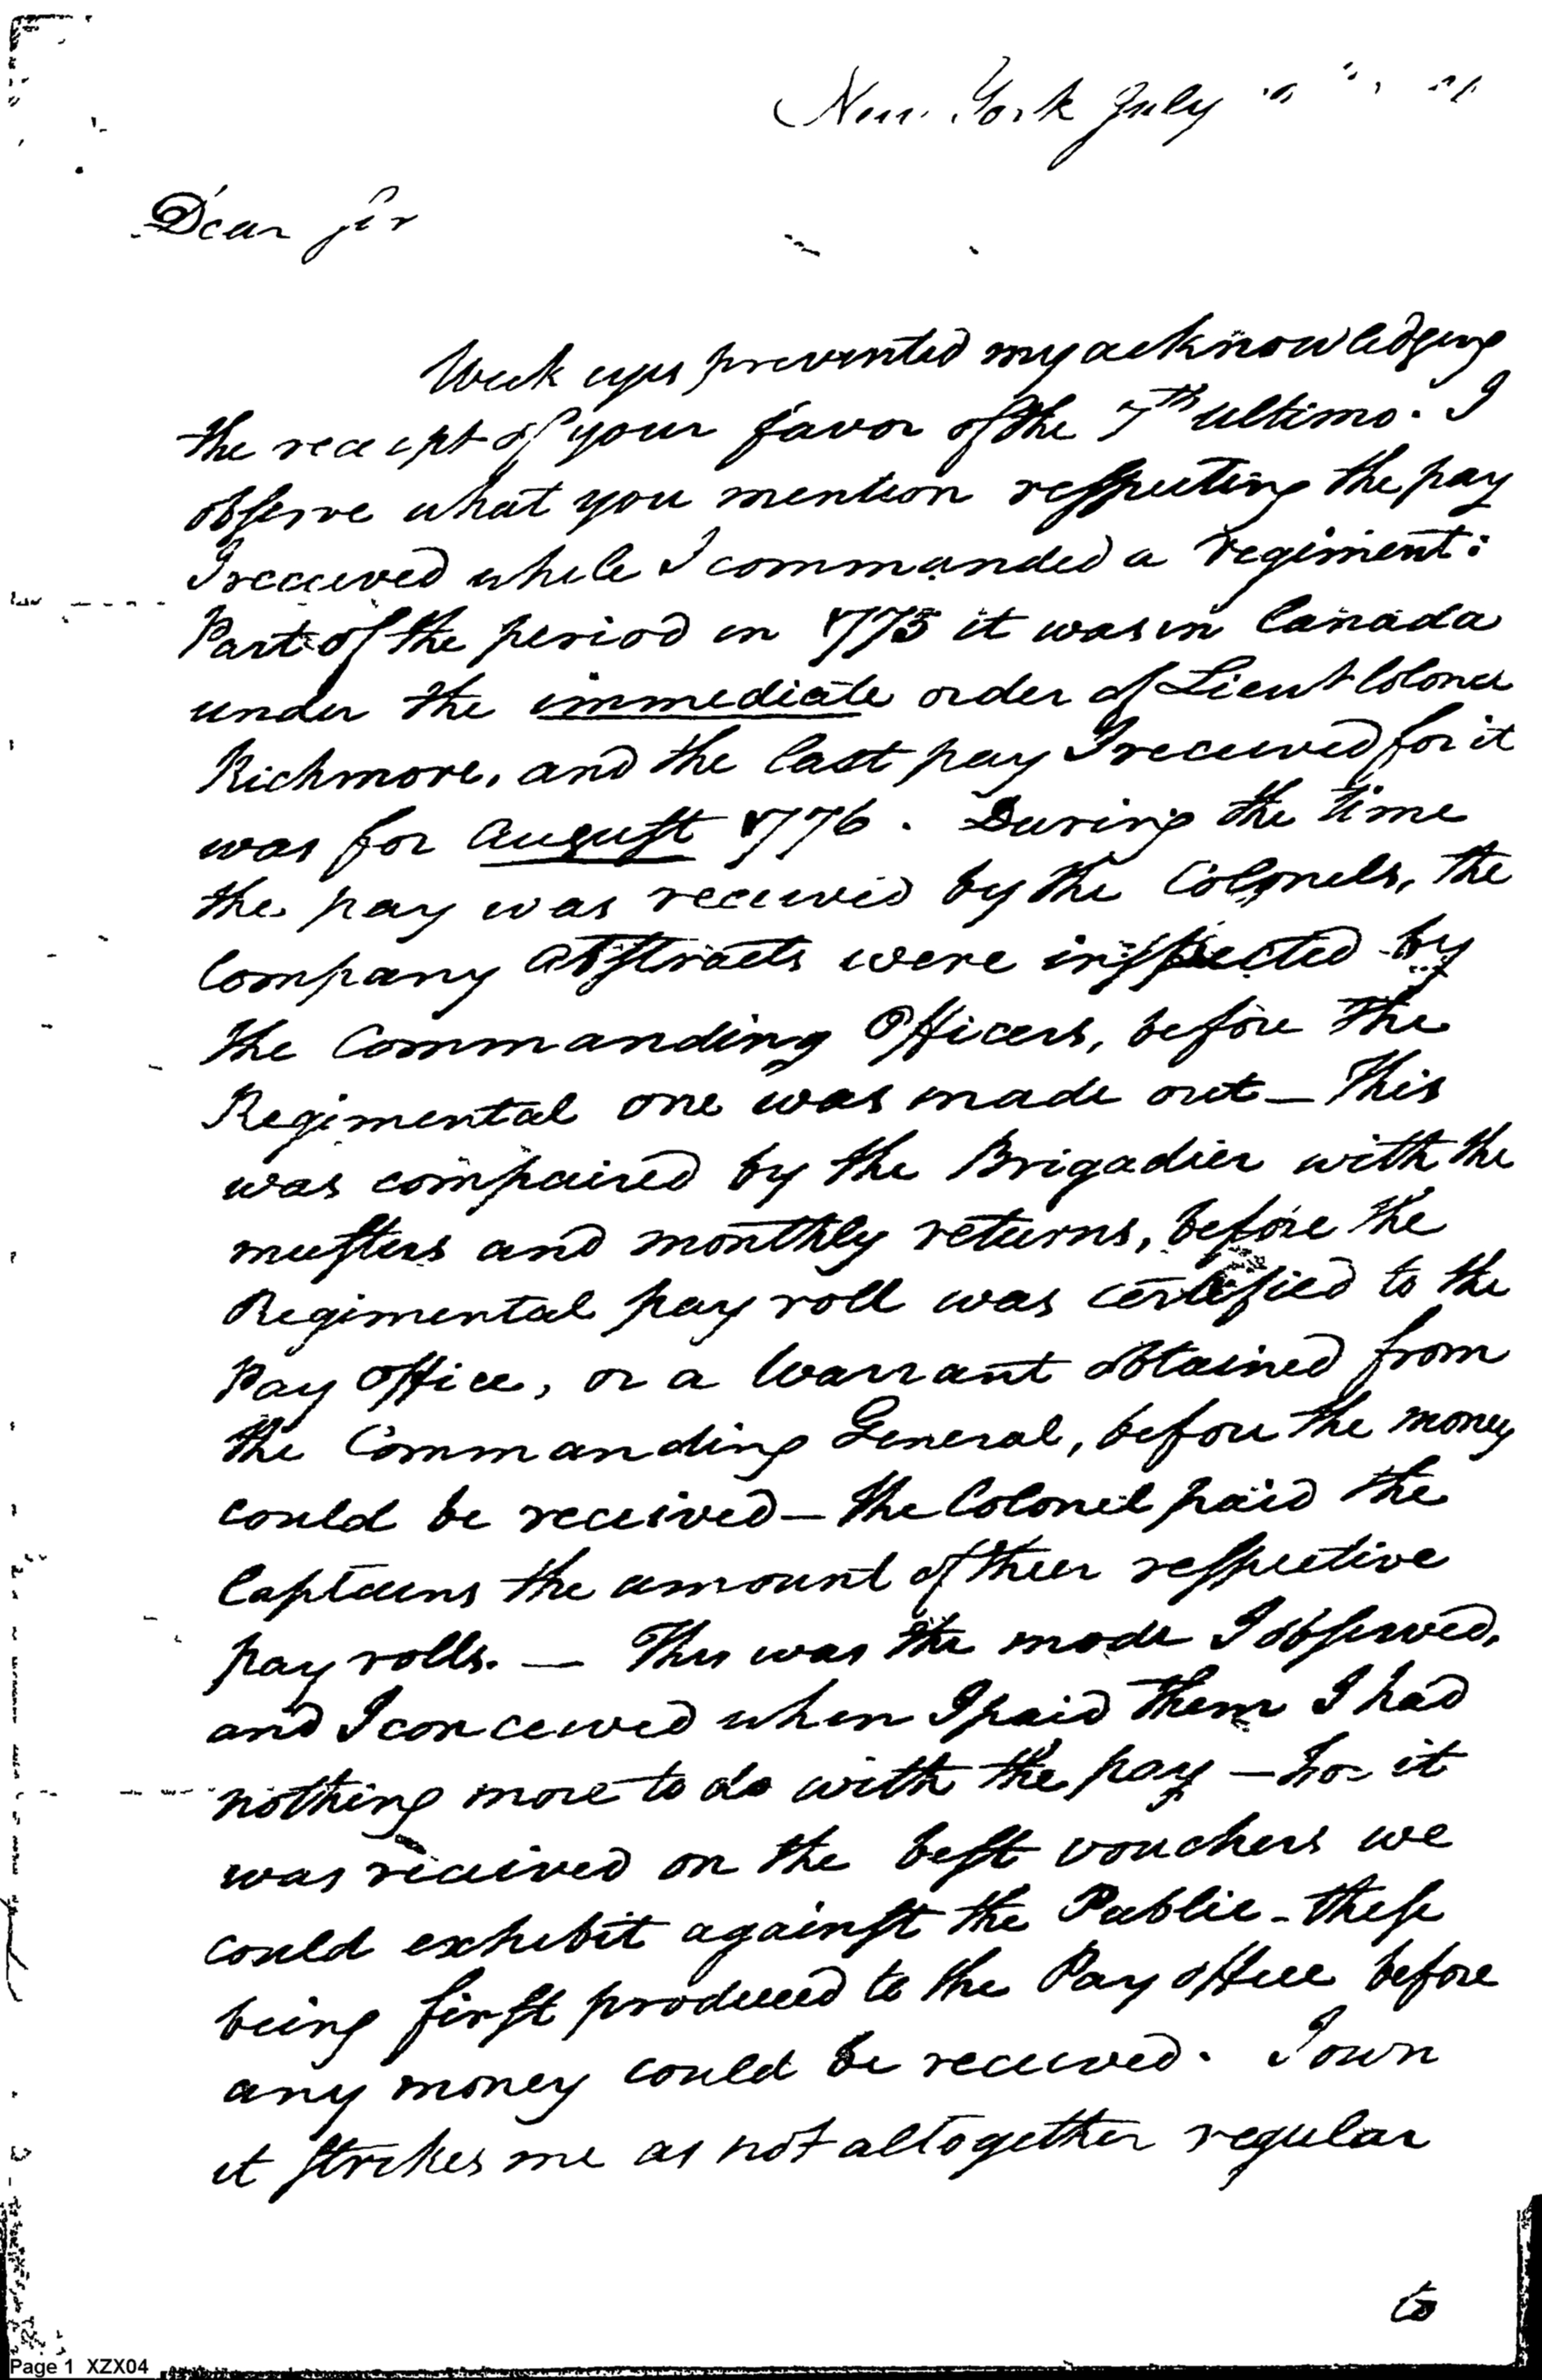 New York July
Dear Sir
Weak eyes prevented my acknowledging
the receipt of your favor of the 7th ultimo. I
observe what you mention respecting the pay
I received while I commanded a regiment:
Part of the period in 1775 it was in Canada
under the immediate order of Lieut Colonel
Richmore, and the last pay I received for it
was for August 1776. During the time
the pay was received by the Colonels, the
Company Abstracts were inspected by
the Commanding Officers, before the
Regimental one was made out — This
was compaired by the Brigadier with the
musters and monthly returns, before the
Regimental pay roll was certified to the
Pay Office, or a Warrant obtained from
the Commanding General, before the money
could be received — the Colonel paid the
Captains the amount of their respective
pay rolls. — This was the mode I observed,
and I conceived when I paid them I had
nothing more to do with the pay — for it
was received on the best vouchers we
could exhibit against the Public - these
being first produced to the Pay office before
any money could be received. I own
it strikes me as not altogether regular
to
Page 1 XZX04